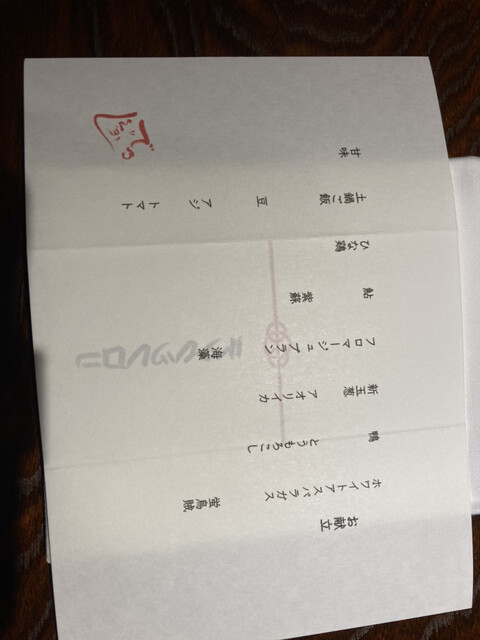 お献立
ホワイトアスパラガス　螢烏賊
鴨　とうもろこし
新玉葱　アオリイカ
フロマージュブラン　海藻
鮎　紫蘇
ひな鶏
土鍋ご飯　豆　アジ　トマト
甘味